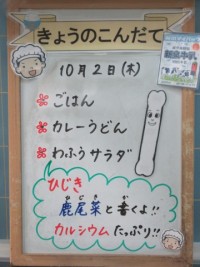 きょうのこんだて
10月2日(木)
ごはん
カレーうどん
わふうサラダ
ひじき
鹿尾菜と書くよ!!
カルシウムたっぷり!!